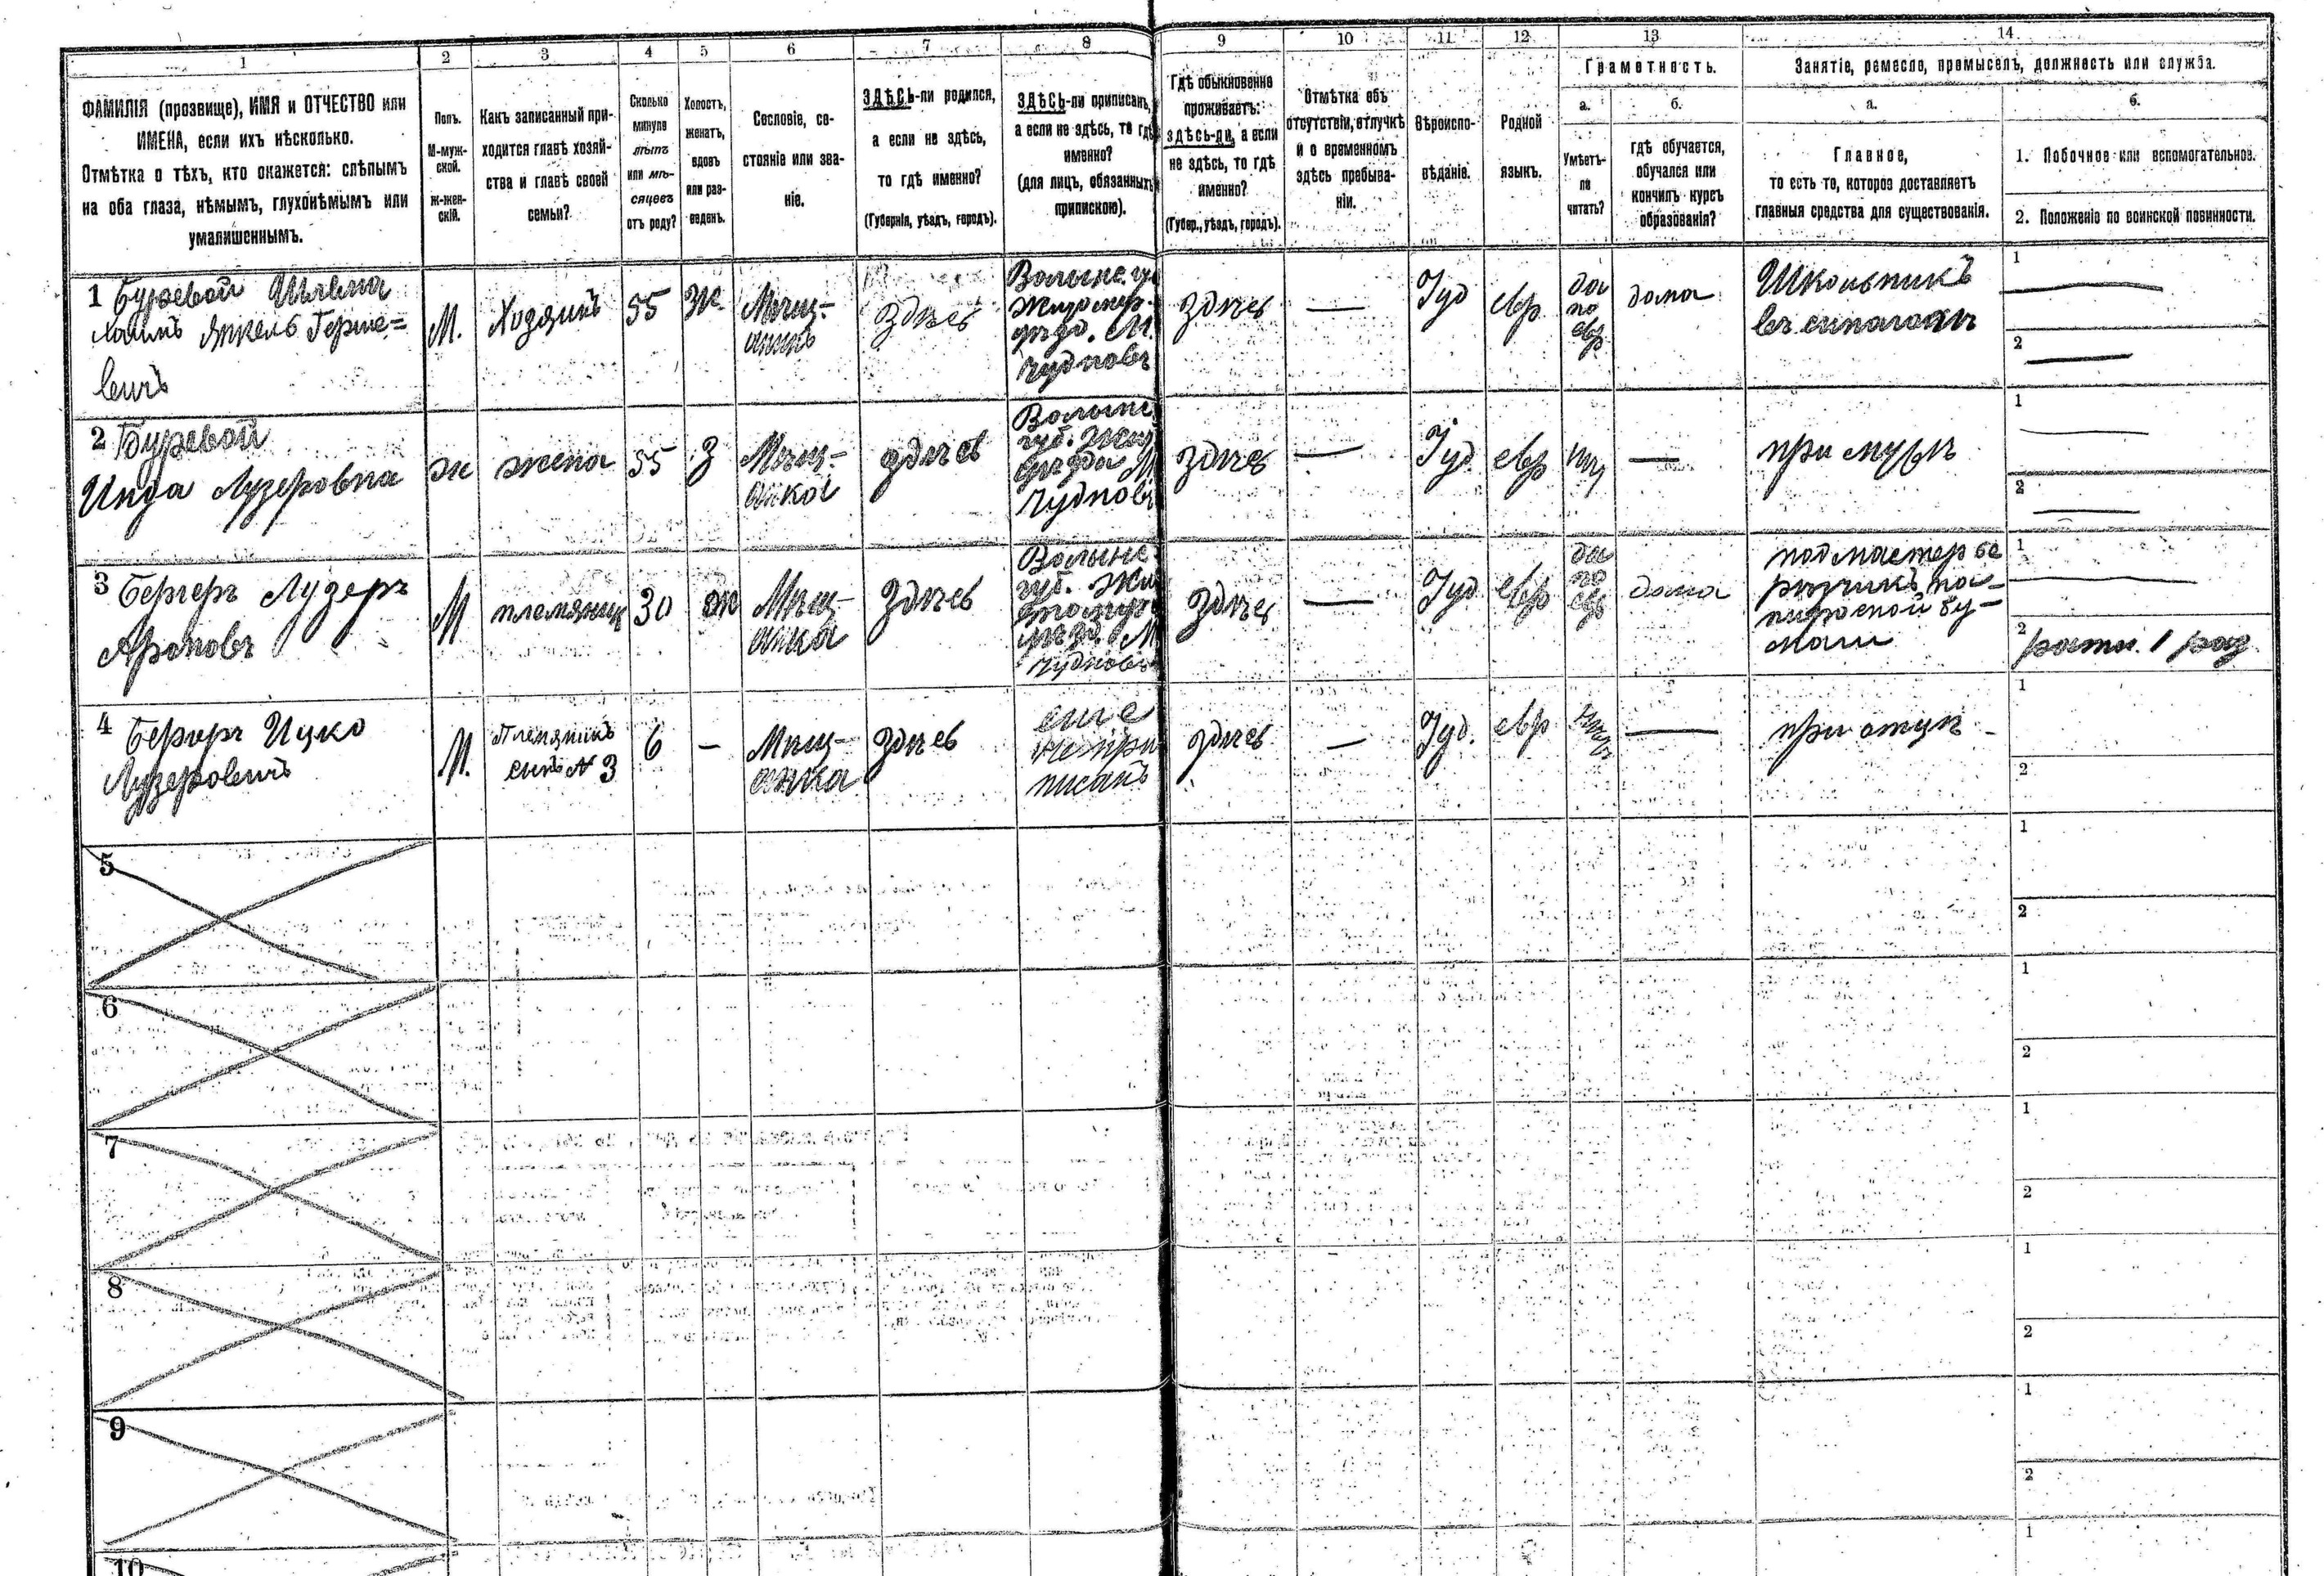 1
2
3
4
5
6
7
8
9
10
11
12
13
14
ФАМИЛІЯ (прозвище), ИМЯ и ОТЧЕСТВО или
ИМЕНА, если ихъ нѣсколько.
Отмѣтка о тѣхъ, кто окажется: слѣпымъ
на оба глаза, нѣмымъ, глухонѣмымъ или
умалишеннымъ.
Полъ.
М-муж-
ской.
ж-жен-
скій.
Какъ записанный при-
ходится главѣ хозяй-
ства и главѣ своей
семьи?
Сколько
минуло
лѣтъ
или мѣ-
сяцевъ
отъ роду?
Холостъ,
женатъ,
вдовъ
или раз-
веденъ.
Сословіе, со-
стояніе или зва-
ніе.
ЗДѢСЬ-ли родился,
а если не здѣсь,
то гдѣ именно?
(Губернія, уѣздъ, городъ).
ЗДѢСЬ-ли приписанъ,
а если не здѣсь, то гдѣ
именно?
(для лицъ, обязанныхъ
припискою).
Гдѣ обыкновенно
проживаетъ:
здѣсь-ли, а если
не здѣсь, то гдѣ
именно?
(Губер., уѣздъ, городъ).
Отмѣтка объ
отсутствіи, отлучкѣ
и о временномъ
здѣсь пребыва-
ніи.
Вѣроиспо-
вѣданіе.
Родной
языкъ.
Грамотность.
а.
б.
Умѣетъ-
ли
читать?
гдѣ обучается,
обучался или
кончилъ курсъ
образованія?
Занятіе, ремесло, промыселъ, должность или служба.
а.
б.
Главное,
то есть то, которое доставляетъ
главныя средства для существованія.
1. Побочное или вспомогательное.
2. Положеніе по воинской повинности.
1 Буревой
Хаимъ Янкель Герше=
вичъ
М.
Хозяинъ
55
Ж
Мѣщ-
анинъ
здѣсь
Волынс. гу
Житомир.
уѣзд. М.
Чудновъ
здѣсь
—
Іуд
евр
да
по
евр
дома
Школьникъ
въ синагогѣ
1
2
2 Буревой
Инда Лузеровна
ж
жена
55
З
Мѣщ-
анка
здѣсь
Волынс
губ. Жит
уѣзда М
Чудновъ
здѣсь
—
Іуд
евр
—
при мужѣ
1
2
3 Бергеръ Лузеръ
Ароновъ
М
племяник
30
ж
Мѣщ-
анка
здѣсь
Волынс
губ. Жи
томир
уѣзд. М
Чудновъ
здѣсь
—
Іуд
евр
да
по
евр
дома
подмастерье
рѣзчикъ па-
пиросной бу-
маги
1
2 ратн. 1 раз
4 Бергеръ Ицко
Лузеровичъ
М.
Племяникъ
сынъ № 3
6
—
Мѣщ-
анка
здѣсь
еще
не при
писанъ
здѣсь
—
Іуд.
евр
—
при отцѣ
1
2
5
1
2
6
1
2
7
1
2
8
1
2
9
1
2
10
1